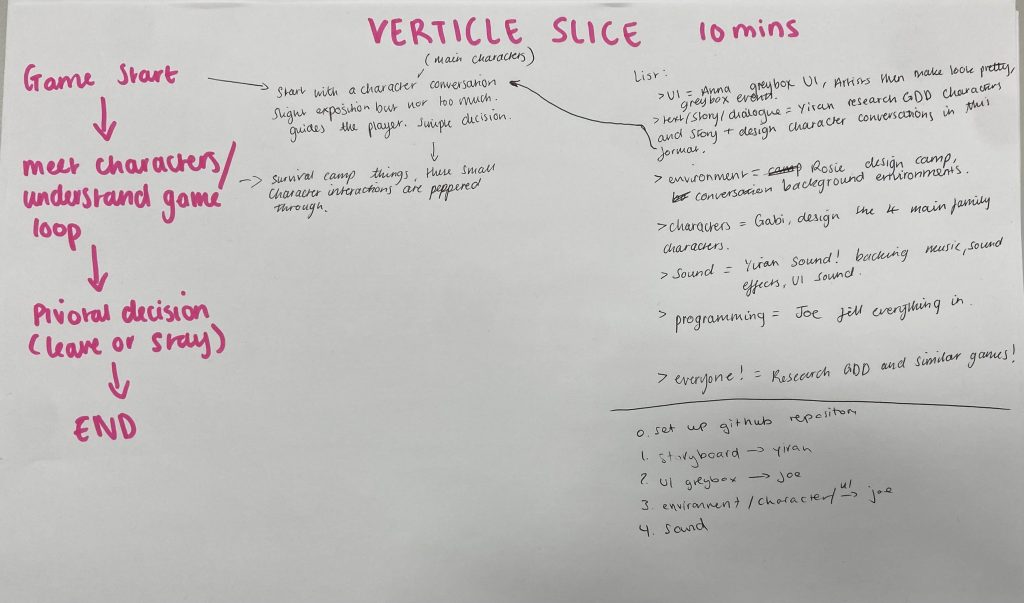 VERTICLE SLICE 10 mins
Game Start
meet characters/
understand game
loop
Pivotal decision
(leave or stay)
END
(main characters)
Start with a character conversation
slight exposition but not too much.
guides the player. simple decision.
survival camp things, these small
character interactions are peppered
through.
List:
> UI = Anna greybox UI, Artists then make look pretty,
greybox events.
> text/story/dialogue = Yiran research GDD characters
and story + design character conversations in this
format.
> environment = camp Rosie design camp,
conversation background environments.
> characters = Gabi, design the 4 main family
characters.
> Sound = Yiran sound! backing music, sound
effects, UI sound.
> programming = Joe fill everything in.
> everyone! = Research GDD and similar games!
0. set up github repository
1. storyboard → yiran
2. UI greybox → joe
3. environment / character / UI → joe
4. sound